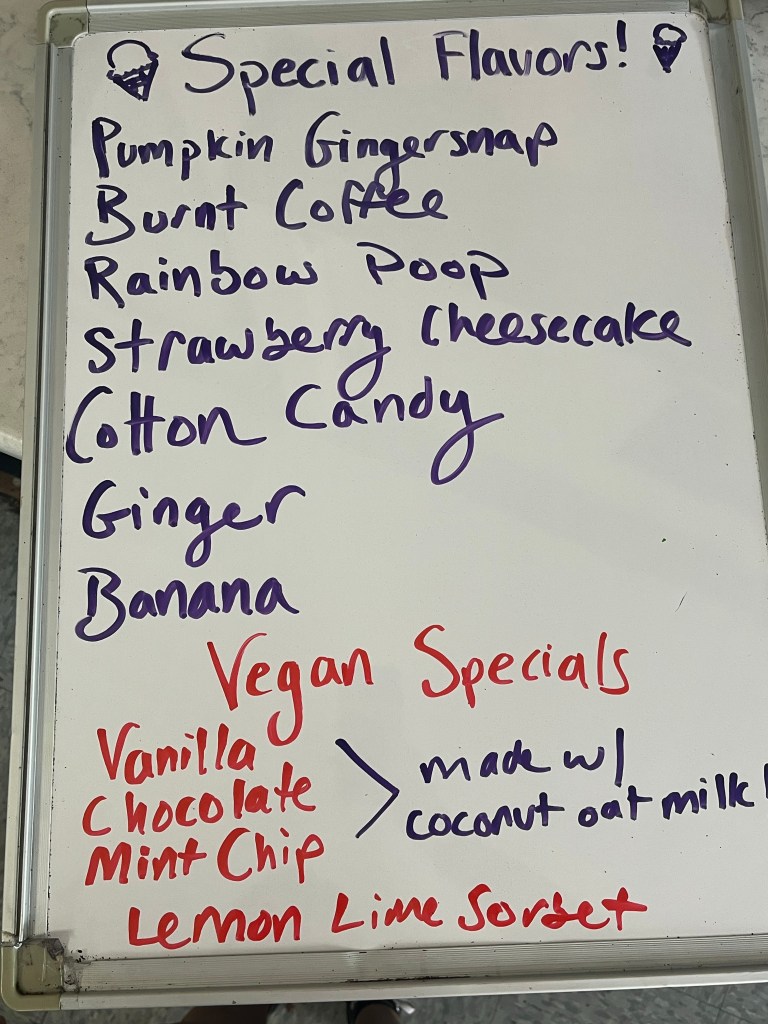 Special Flavors!
Pumpkin Gingersnap
Burnt Coffee
Rainbow Poop
Strawberry Cheesecake
Cotton Candy
Ginger
Banana
Vegan Specials
Vanilla
Chocolate
Mint Chip
made w/
coconut oat milk!
Lemon Lime Sorbet